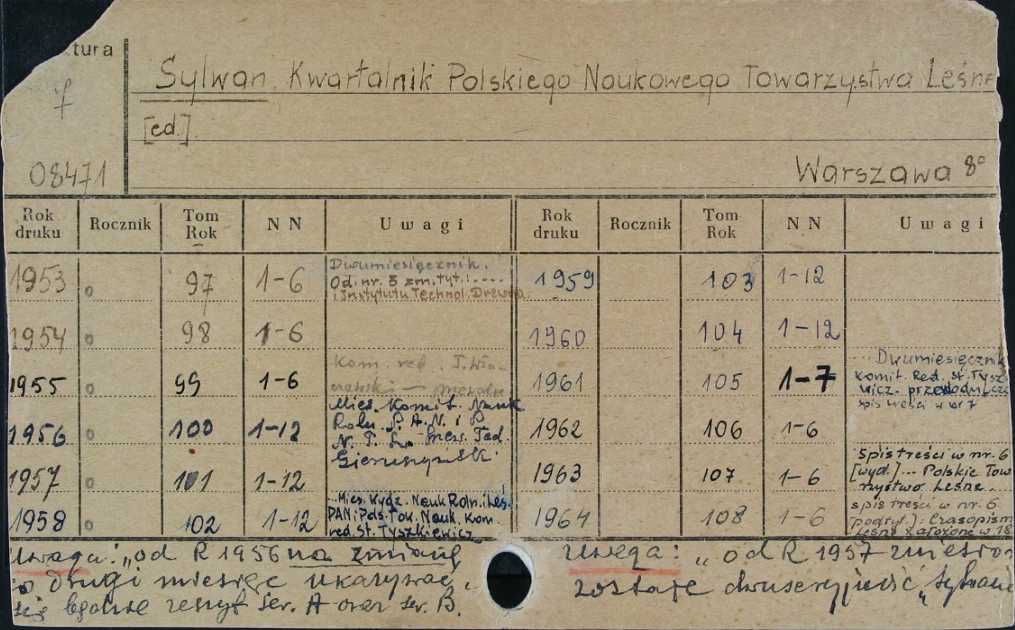 tura
7
Sylwan. Kwartalnik Polskiego Naukowego Towarzystwa Leśne
[ed.]
08471
Warszawa 8°
Rok druku Rocznik Tom Rok N N Uwagi Rok druku Rocznik Tom Rok N N Uwagi
1953 0 97 1-6 Dwumiesięcznik.
Od nr. 5 zm. tyt.: ....
i Instytutu Technol. Drewna
1959 103 1-12
1954 0 98 1-6
1960 104 1-12
1955 0 99 1-6 Kom. red.
1961 105 1-7 ... Dwumiesięcznik
Komit. Red. St. Tysz
wicz. przewodnicz
spis treści w nr 7
1956 0 100 1-12 Mies. Komit. Nauk
Roln. P. A. N. i P.
N. T. L. Tad.
Gieruszyński.
1962 106 1-6
1957 0 101 1-12
1963 107 1-6 Spis treści w nr. 6
[wyd.] ... Polskie Tow
rzystwo Leśne
1958 0 102 1-12 ... Mies. Wydz. Nauk Roln. i Leś.
PAN i Pols. Tow. Nauk. Kom.
red. St. Tyszkiewicz
1964 108 1-6 spis treści w nr. 6
podtyt.: Czasopism
Leśne założone w 18
Uwaga: „od R 1956 na zmianę
co drugi miesiąc ukazywać
się będzie zeszyt ser. A oraz ser. B.
Uwaga: „od R 1957 zniesion
zostaje dwuseryjność „Sylwana